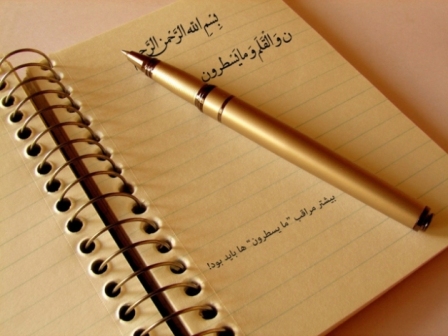 بِسْمِ اللهِ الرَّحْمنِ الرَّحِ
ن وَ الْقَلَمِ وَ ما يَسْطُرون
بیشتر مراقب "ما یسطرون" ها باید بود!